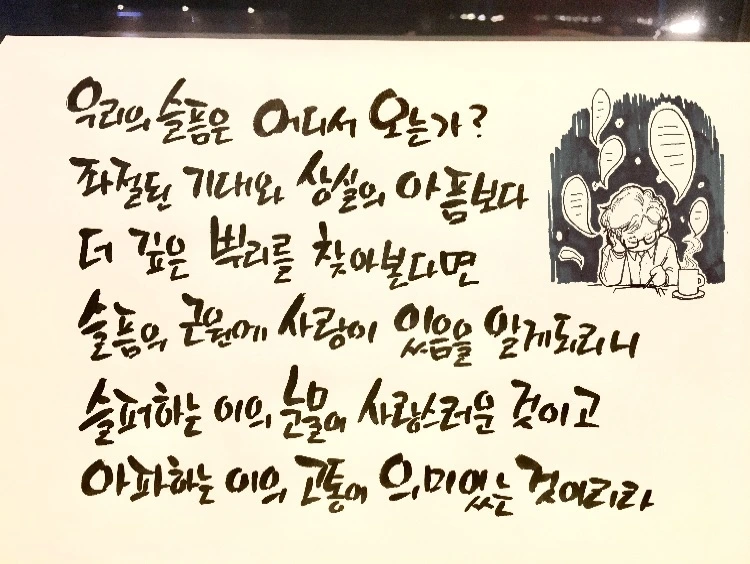 우리의 슬픔은 어디서 오는가?
좌절된 기대와 상실의 아픔보다
더 깊은 뿌리를 찾아본다면
슬픔의 근원에 사랑이 있음을 알게되리니
슬퍼하는 이의 눈물이 사랑스러운 것이고
아파하는 이의 고통이 의미있는 것이리라